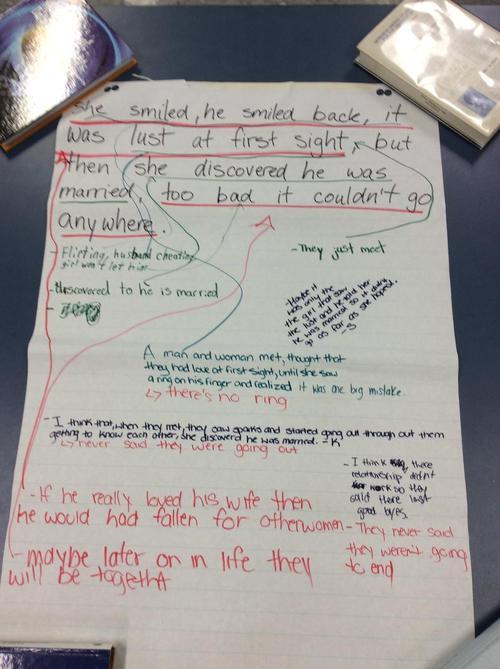 she smiled, he smiled back, it
was lust at first sight, but
then she discovered he was
married, too bad it couldn't go
anywhere.
- Flirting, husband cheating
girl won't let him
- They just meet
- discovered to he is married
- Maybe it
was only the
the girl that saw
the lust and he told her
he was married so it didnt
go as far as she hoped.
-S
A man and woman met, thought that
they had love at first sight, until she saw
a ring on his finger and realized it was one big mistake.
↳ there's no ring
- I think that, when they met, they saw sparks and started going out through out them
getting to know each other, she discoverd he was married. -K
↳ never said they were going out
- I think there
relationship didn't
work so they
said there last
good byes.
- If he really loved his wife then
he would had fallen for otherwomen
- They never said
they weren't going
to end
- maybe later on in life they
will be togetht